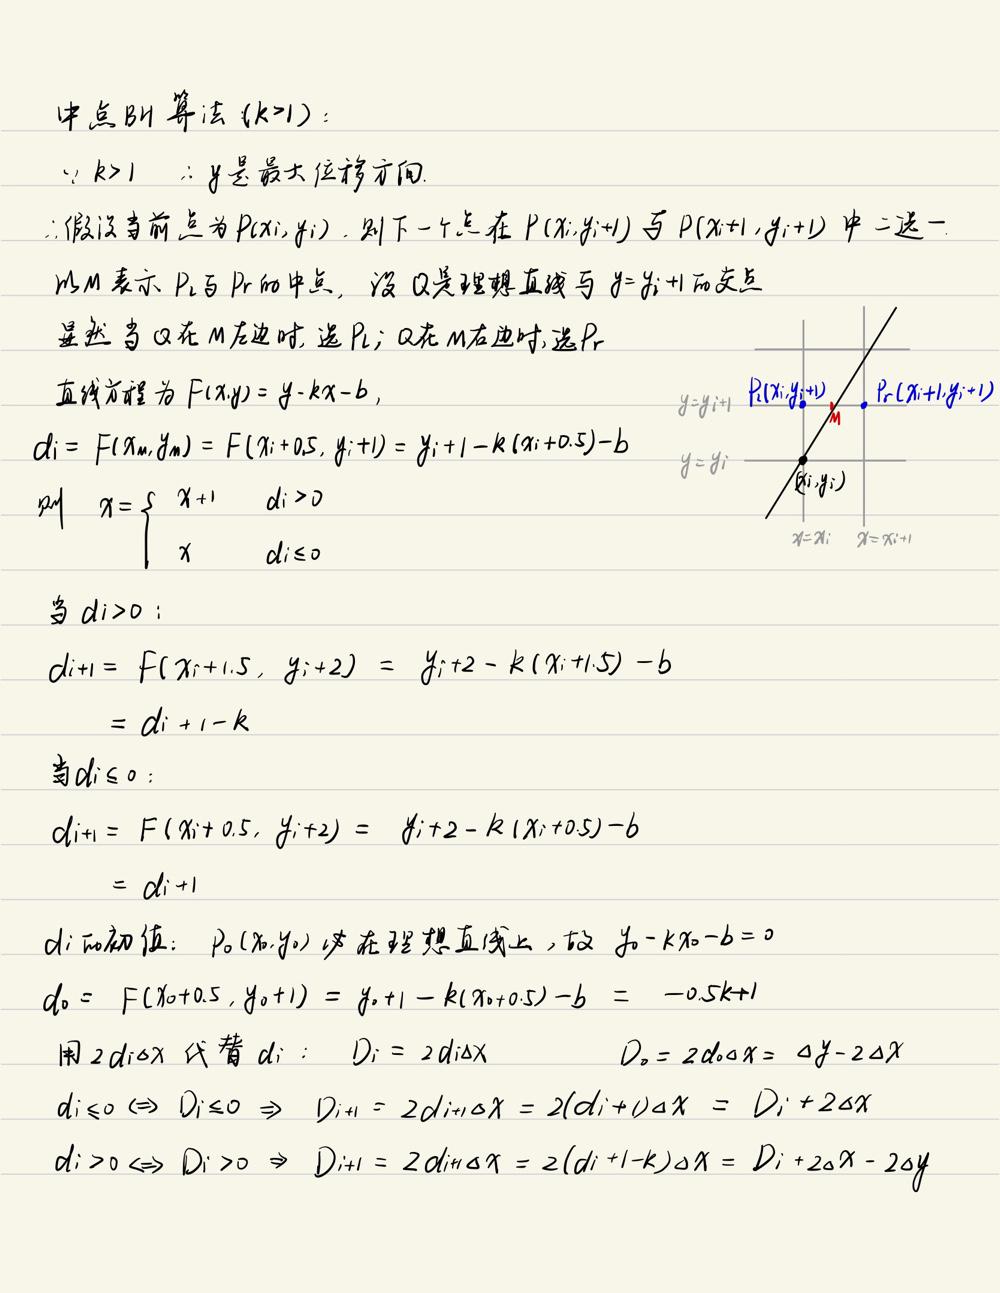 中点BH算法(k>1):
∵ k>1 ∴ y是最大位移方向.
∴假设当前点为P(xi, yi). 则下一个点在P(xi, yi+1)与P(xi+1, yi+1)中二选一.
以M表示Pl与Pr的中点, 设Q是理想直线与y=yi+1的交点
显然当Q在M左边时, 选Pl; Q在M右边时, 选Pr
直线方程为F(x,y)= y-kx-b,
di = F(xM, yM) = F(xi+0.5, yi+1) = yi+1-k(xi+0.5)-b
则 x = { x+1 di>0
x di≤0
Pl(xi, yi+1)
Pr(xi+1, yi+1)
y=yi+1
M
y=yi
(xi, yi)
x=xi
x=xi+1
当di>0:
di+1 = F(xi+1.5, yi+2) = yi+2-k(xi+1.5)-b
= di+1-k
当di≤0:
di+1 = F(xi+0.5, yi+2) = yi+2-k(xi+0.5)-b
= di+1
di的初值: P0(x0,y0)必在理想直线上, 故 y0-kx0-b=0
d0 = F(x0+0.5, y0+1) = y0+1-k(x0+0.5)-b = -0.5k+1
用2di△x代替di: Di = 2di△x D0 = 2d0△x = △y-2△x
di≤0 ⇔ Di≤0 ⇒ Di+1 = 2di+1△x = 2(di+1)△x = Di+2△x
di>0 ⇔ Di>0 ⇒ Di+1 = 2di+1△x = 2(di+1-k)△x = Di+2△x-2△y